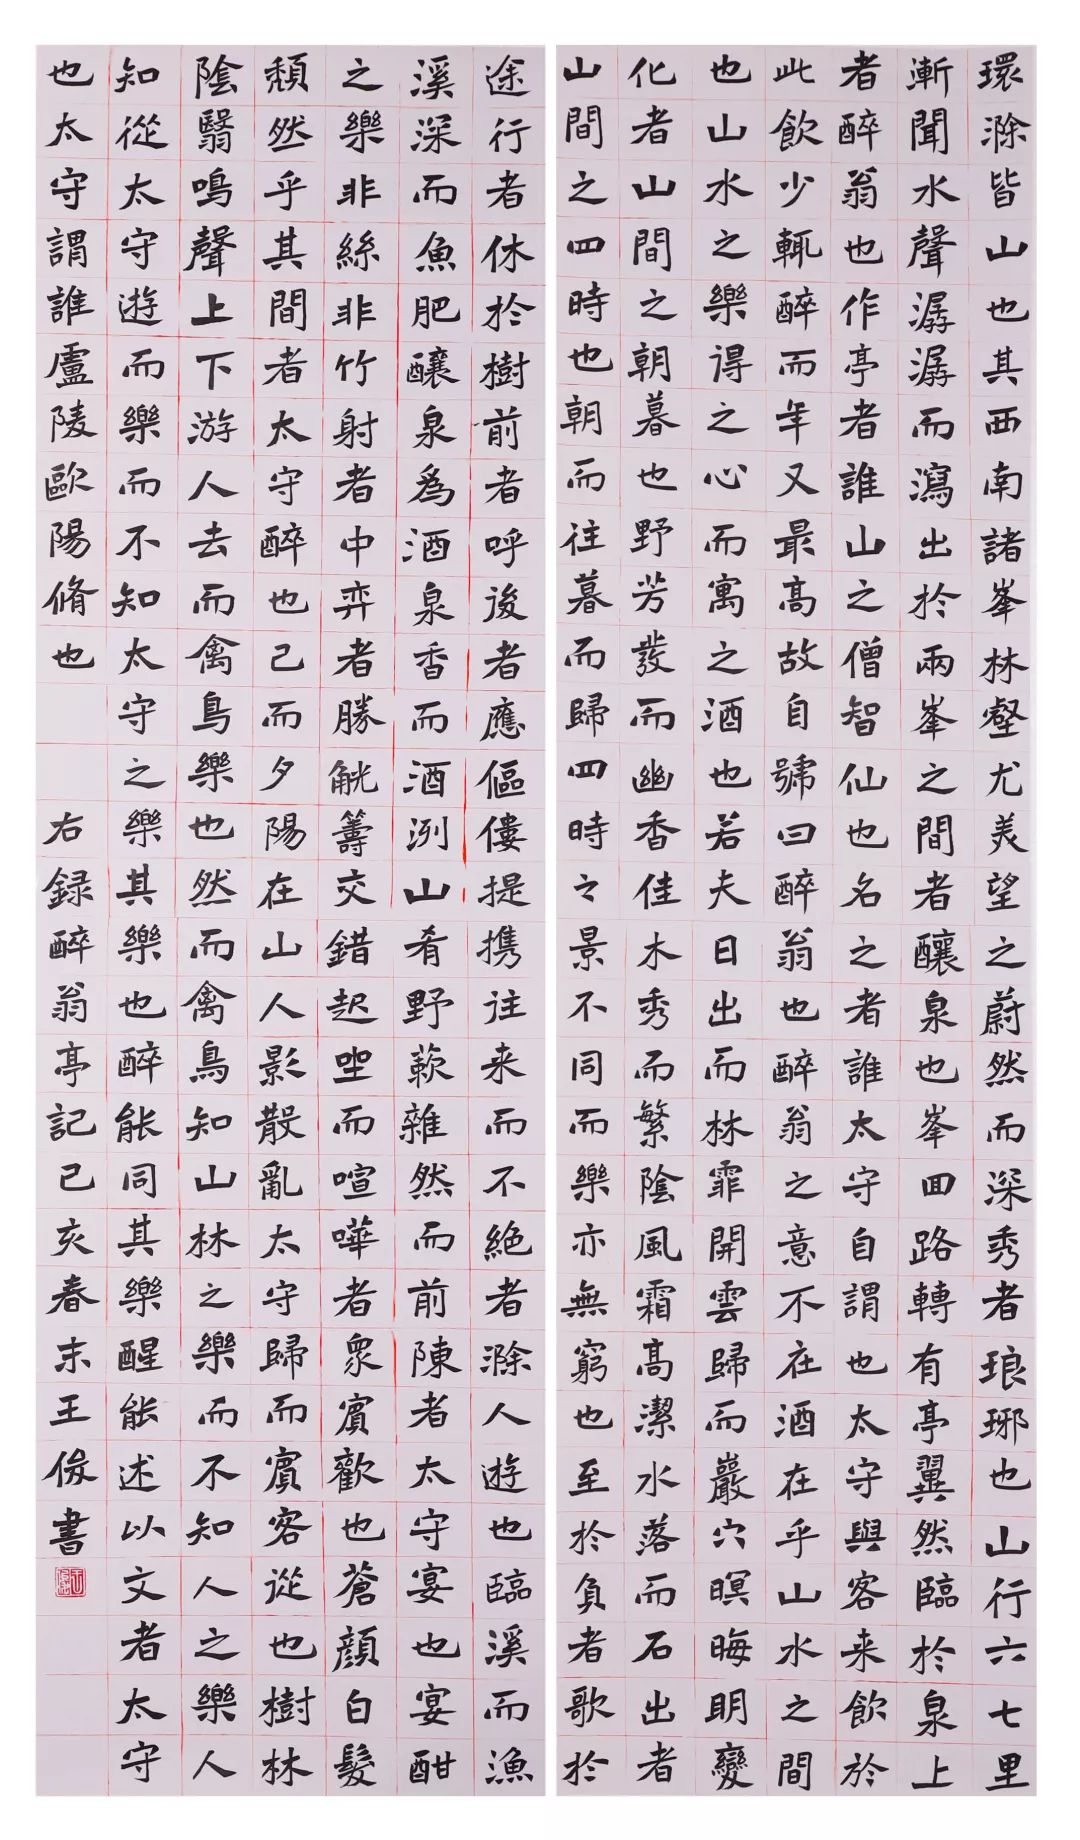 環滁皆山也其西南諸峯林壑尤美望之蔚然而深秀者琅琊也山行六七里
漸聞水聲潺潺而瀉出於兩峯之間者釀泉也峯回路轉有亭翼然臨於泉上
者醉翁也作亭者誰山之僧智仙也名之者誰太守自謂也太守與客来飲於
此飲少輒醉而年又最高故自號曰醉翁也醉翁之意不在酒在乎山水之間
也山水之樂得之心而寓之酒也若夫日出而林霏開雲歸而巖穴暝晦明變
化者山間之朝暮也野芳發而幽香佳木秀而繁陰風霜高潔水落而石出者
山間之四時也朝而往暮而歸四時之景不同而樂亦無窮也至於負者歌於
途行者休於樹前者呼後者應傴僂提携往来而不絕者滁人遊也臨溪而漁
溪深而魚肥釀泉爲酒泉香而酒洌山肴野蔌雜然而前陳者太守宴也宴酣
之樂非絲非竹射者中弈者勝觥籌交錯起坐而喧嘩者衆賓歡也蒼顏白髮
頹然乎其間者太守醉也已而夕陽在山人影散亂太守歸而賓客從也樹林
陰翳鳴聲上下游人去而禽鳥樂也然而禽鳥知山林之樂而不知人之樂人
知從太守遊而樂而不知太守之樂其樂也醉能同其樂醒能述以文者太守
也太守謂誰廬陵歐陽脩也 右録醉翁亭記己亥春末王俊書